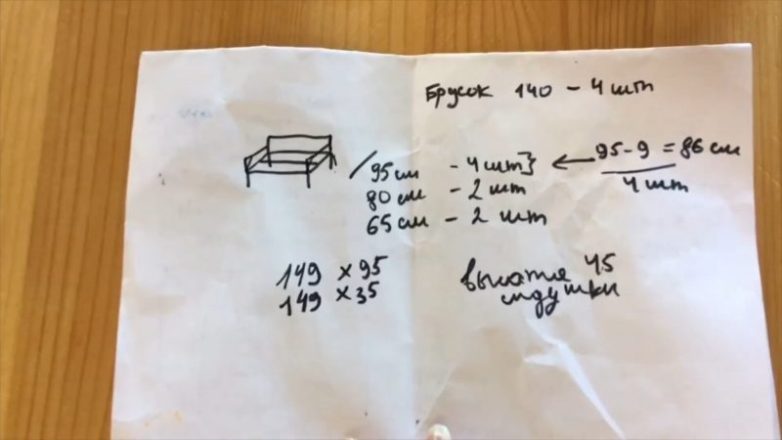 Брусок 140 - 4 шт
95 см - 4 шт} ← 95-9 = 86 см
4 шт
80 см - 2 шт
65 см - 2 шт
149 x 95
149 x 35
высота 45